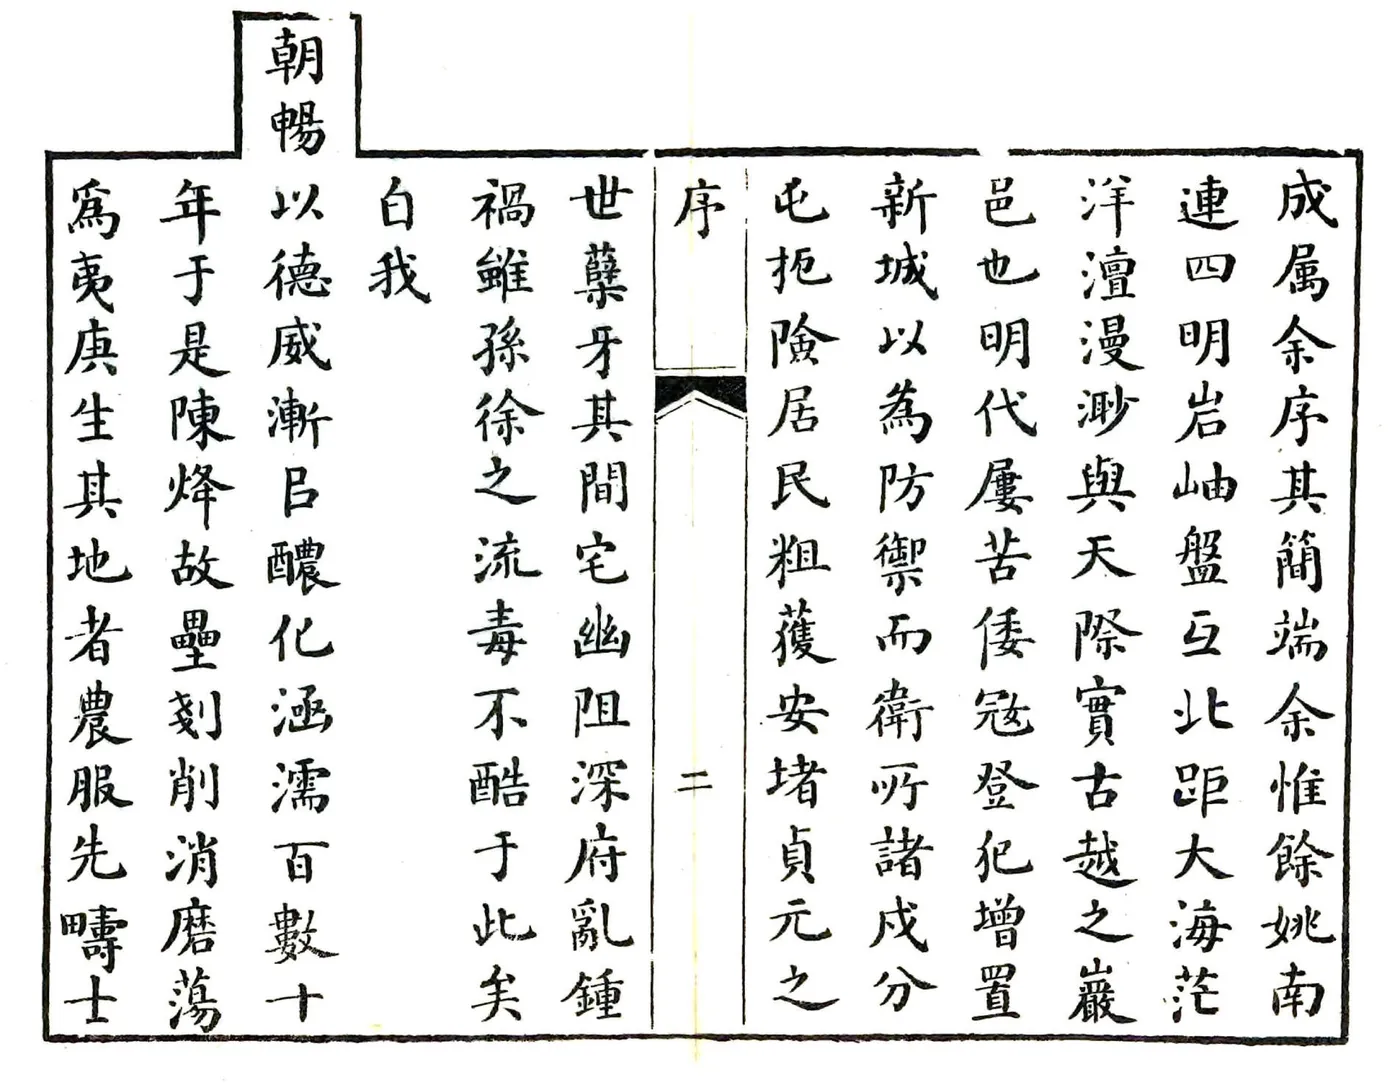 成属余序其簡端余惟餘姚南
連四明岩岫盤互北距大海茫
洋澶漫渺與天際實古越之巖
邑也明代屢苦倭冦登犯增置
新城以為防禦而衛所諸戍分
屯扼險居民粗獲安堵貞元之
序
二
世蘖牙其間宅幽阻深府亂鍾
禍雖孫徐之流毒不酷于此矣
白我
朝暢以德威漸㠯醲化涵濡百數十
年于是陳烽故壘剗削消磨蕩
爲夷庚生其地者農服先疇士